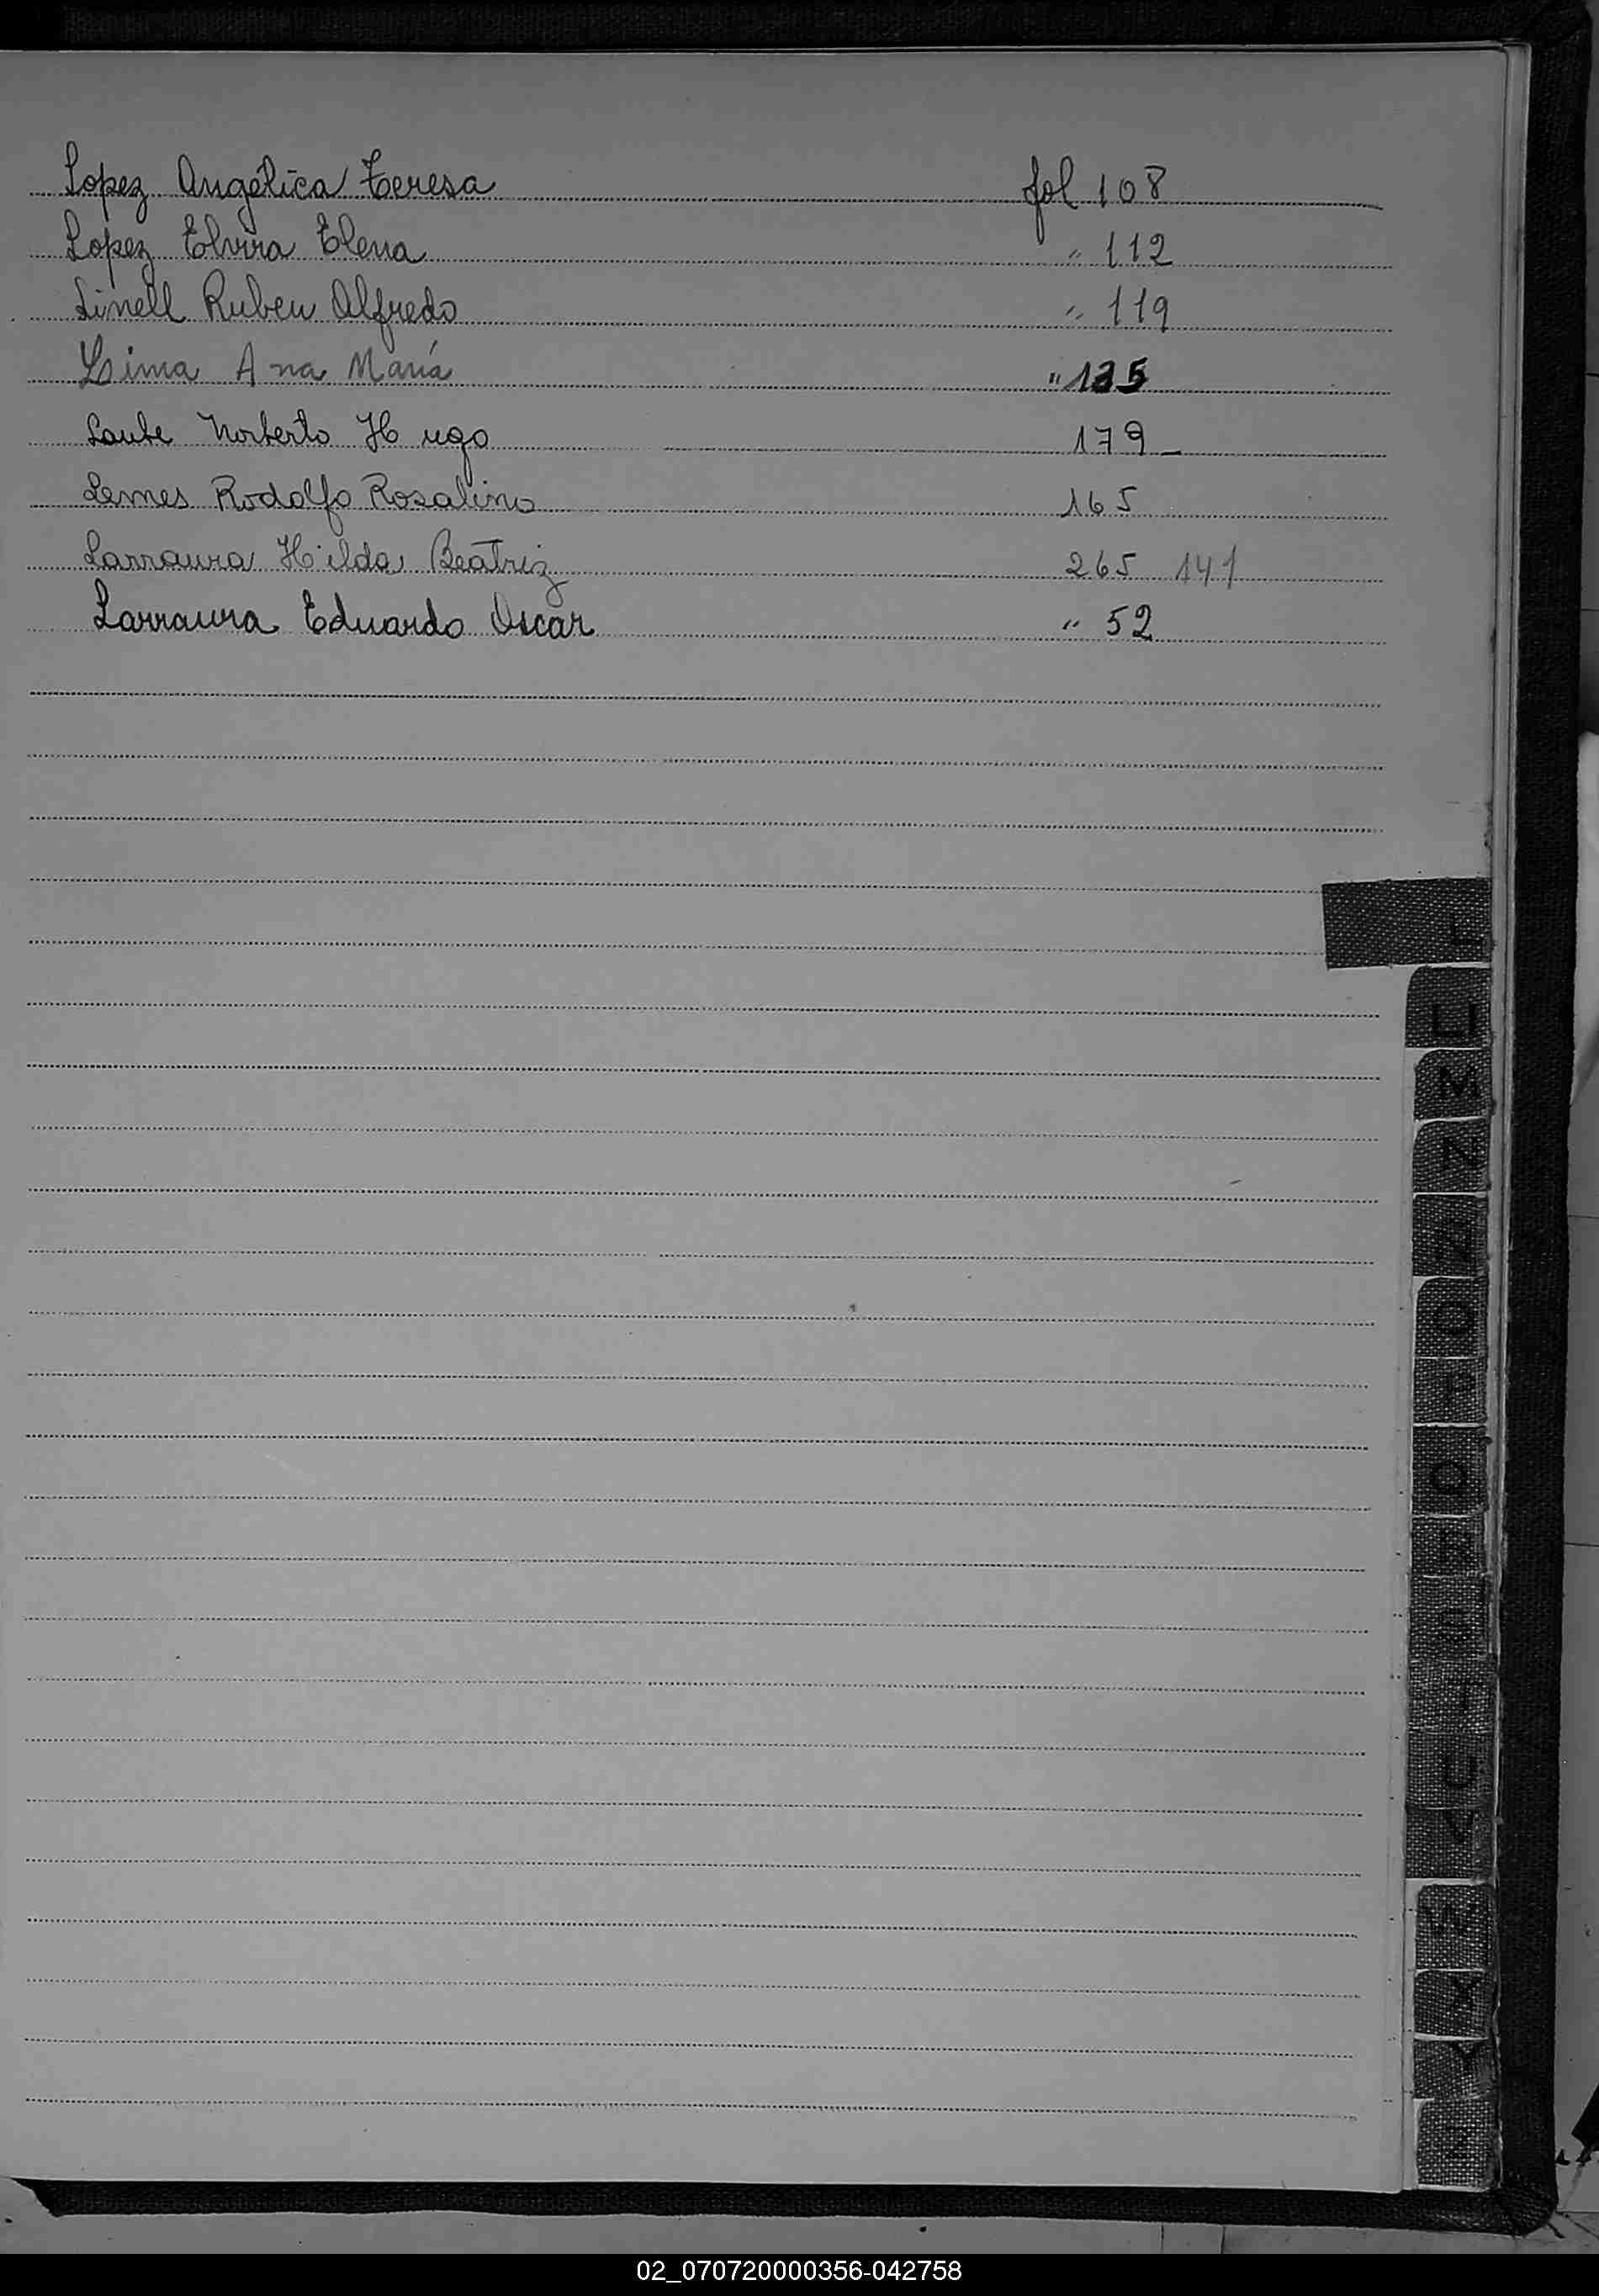 Lopez Angélica Teresa fol 108
Lopez Elvira Elena " 112
Linell Ruben Alfredo " 119
Lima Ana María " 135
Laube Norberto Hugo 179
Lemes Rodolfo Rosalino 165
Larraura Hilda Beatriz 265 141
Larraura Eduardo Oscar " 52
L
LL
M
N
Ñ
O
P
Q
R
S
T
U
V
W
X
Y
Z
02_070720000356-042758